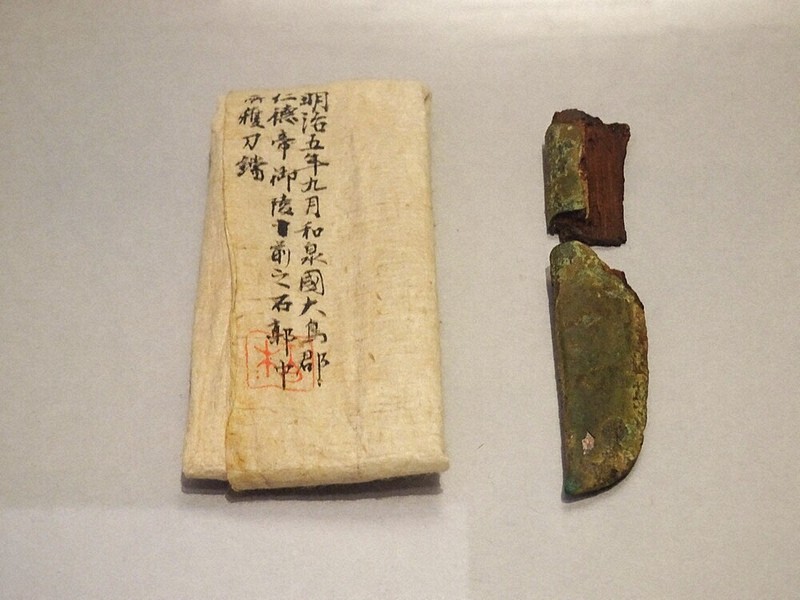 明治五年九月和泉國大鳥郡
仁德帝御陵前之石郭中
所穫刀鐺
柏木